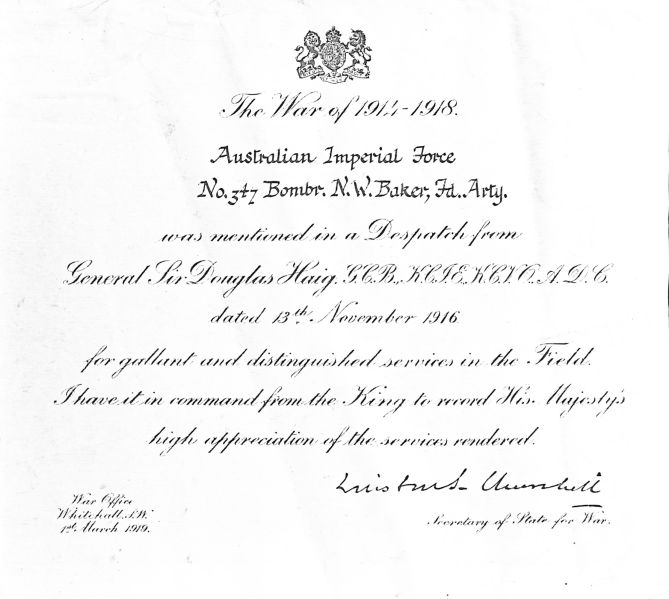 The War of 1914-1918.
Australian Imperial Force
No. 347 Bombr. N.W. Baker, Fd.. Arty.
was mentioned in a Despatch from
General Sir Douglas Haig, G.C.B., K.C.I.E., K.C.V.O., A.D.C.
dated 13th November 1916
for gallant and distinguished services in the Field.
I have it in command from the King to record His Majesty's
high appreciation of the services rendered.
Winston S. Churchill
War Office
Whitehall, S.W.
1st March 1919.
Secretary of State for War.